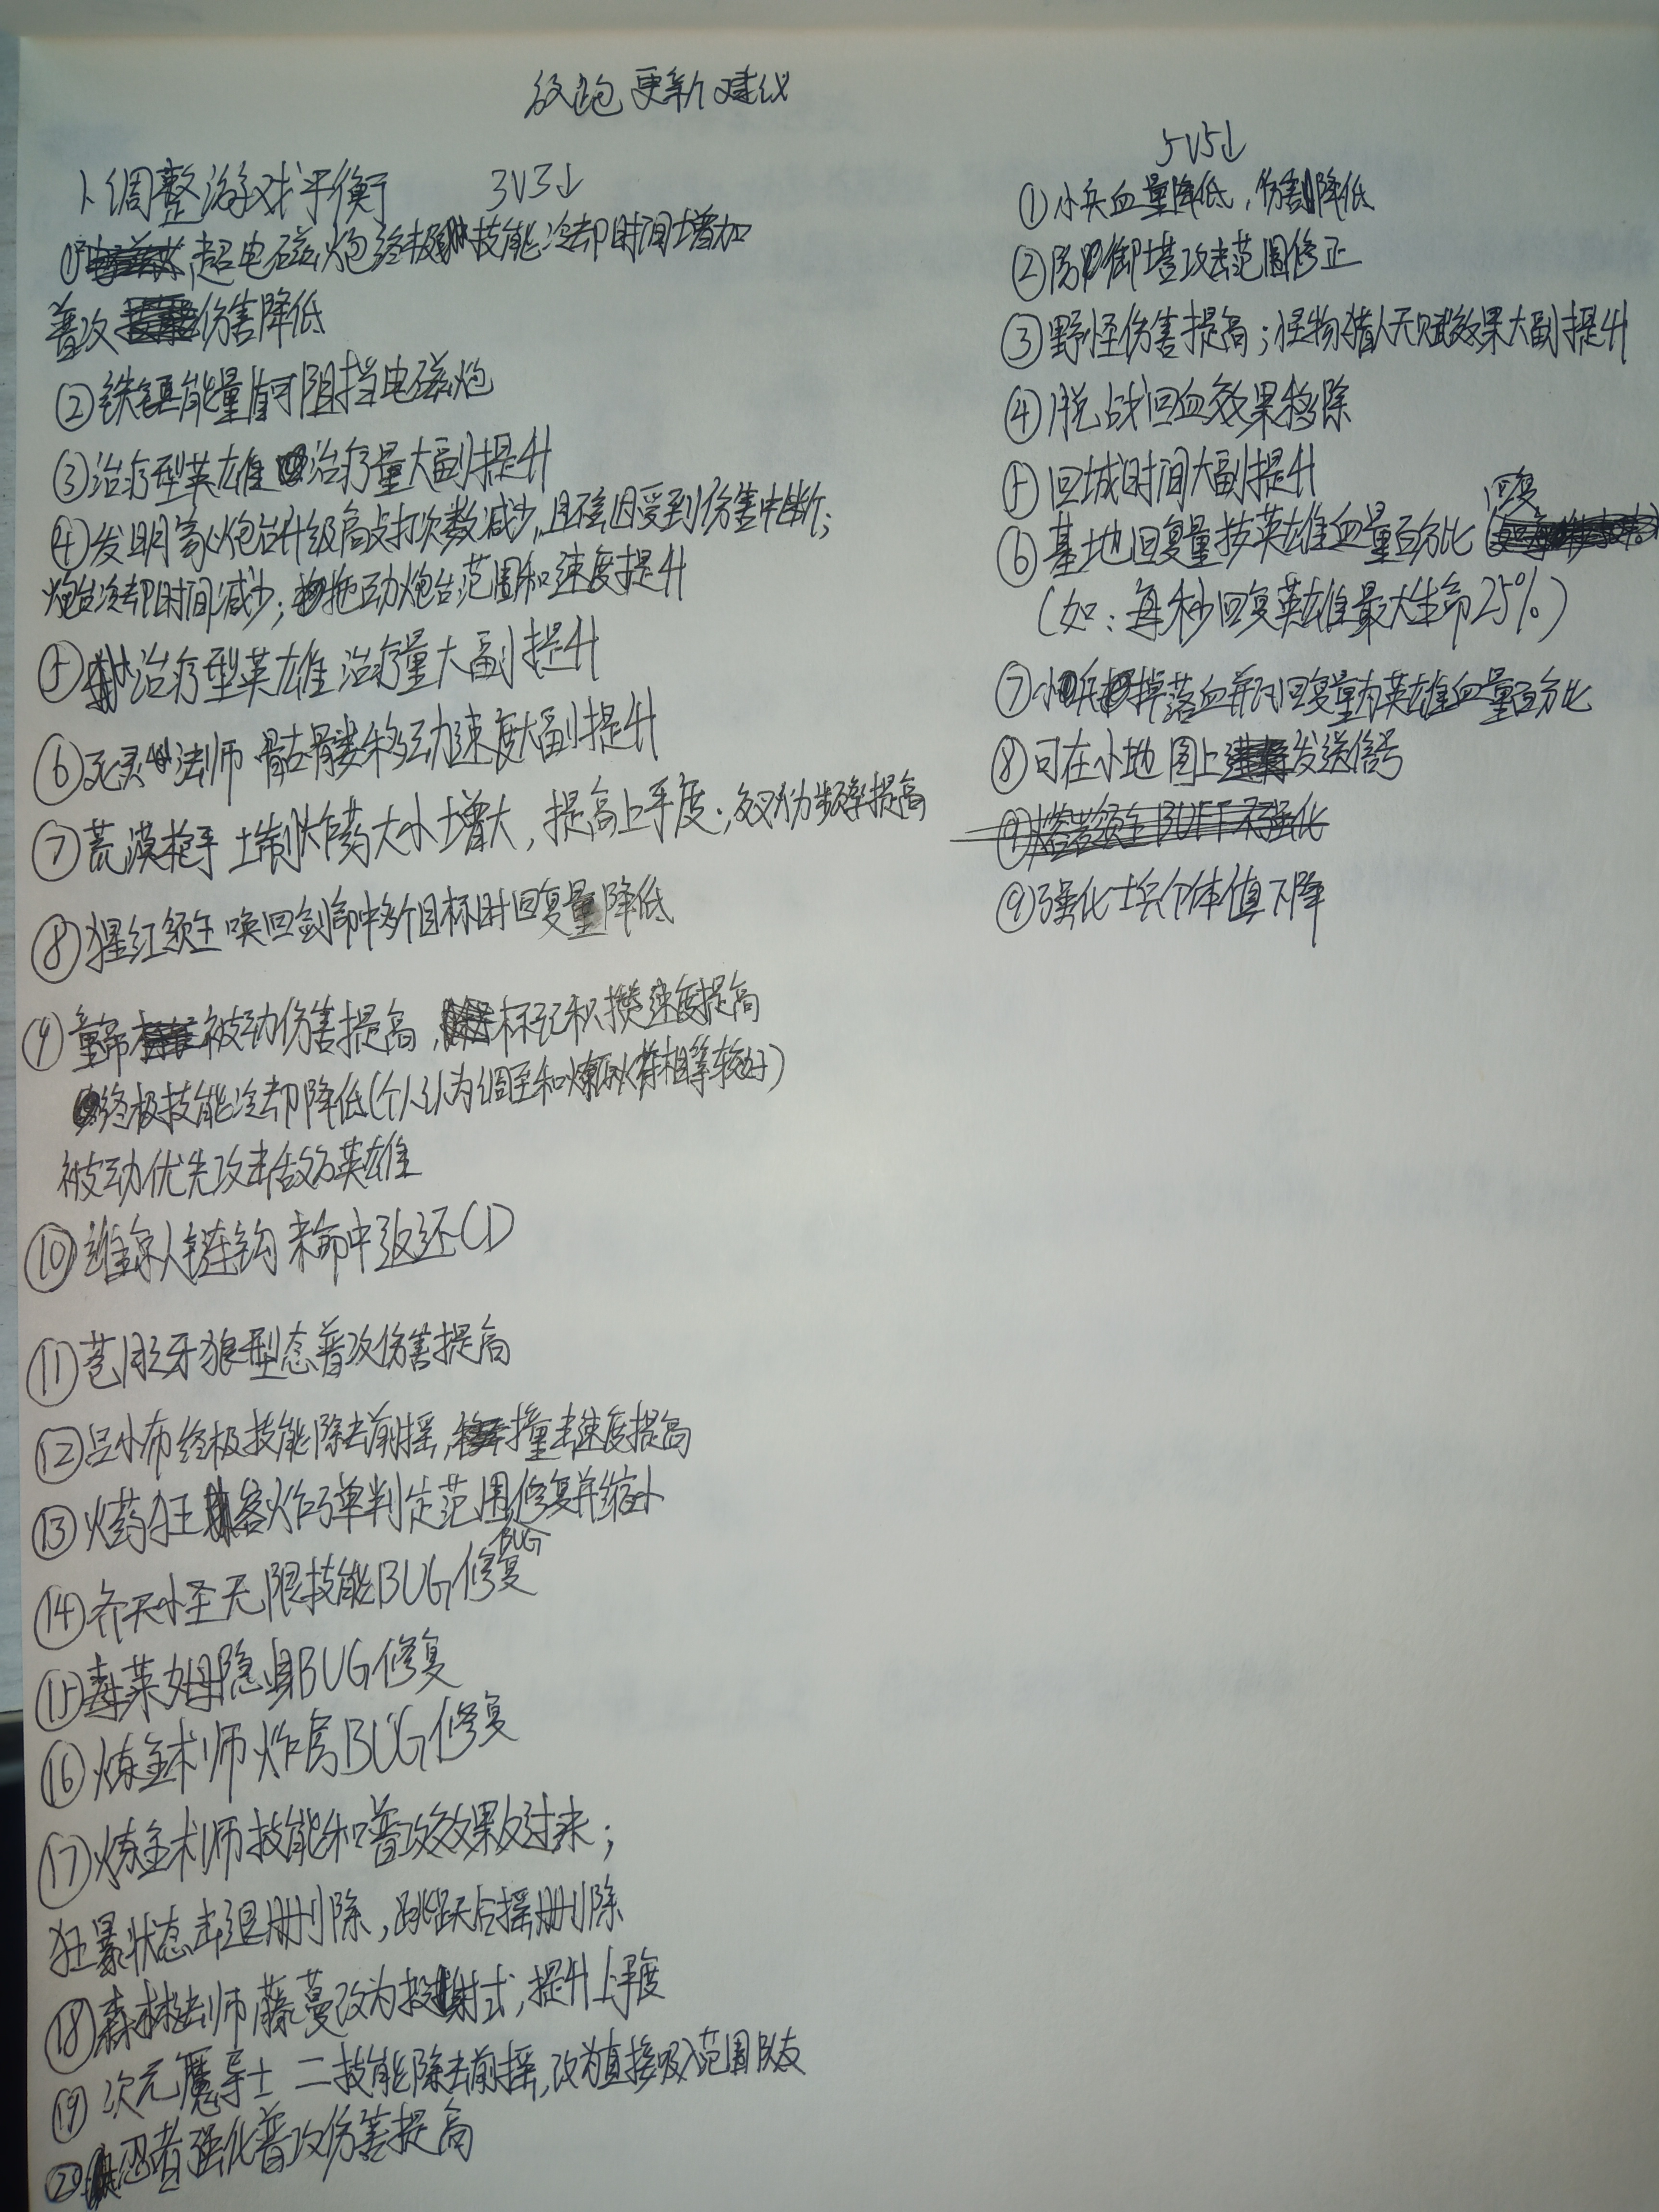 更新建议
1、调整游戏平衡 3V3↓
① 超电磁炮终极技能冷却时间增加
普攻伤害降低
②铁锤能量盾可阻挡电磁炮
③治疗型英雄治疗量大副提升
④发明家炮台升级高点打次数减少,且不会因受到伤害中断;
炮台冷却时间减少;拖动炮台范围和速度提升
⑤治疗型英雄 治疗量大副提升
⑥死灵法师 骷髅移动速度大副提升
⑦荒漠枪手 土制炸药大小增大,提高上手度;频率提高
⑧猩红领主 唤回剑命中多个目标时回复量降低
⑨ 被动伤害提高,标记积攒速度提高
终极技能冷却降低(个人认为调至和相等较好)
被动优先攻击敌方英雄
⑩维京人链钩 未命中返还CD
⑪苍月之牙狼型态普攻伤害提高
⑫吕小布终极技能除去前摇,撞击速度提高
⑬火药狂客炸弹判定范围修复并缩小
⑭齐天小圣无限技能BUG修复
BUG
⑮毒莱姆隐身BUG修复
⑯炼金术师炸房BUG修复
⑰炼金术师技能和普攻效果反过来;
狂暴状态击退删除,跳跃后摇删除
⑱森林法师藤蔓改为投射式,提升上手度
⑲次元魔导士 二技能除去前摇,改为直接吸入范围队友
⑳忍者强化普攻伤害提高
5V5↓
①小兵血量降低,伤害降低
②防御塔攻击范围修正
③野怪伤害提高;怪物猎人天赋效果大副提升
④脱战回血效果移除
⑤回城时间大副提升
⑥基地回复量按英雄血量百分比回复
(如:每秒回复英雄最大生命25%)
⑦小兵掉落血瓶回复量为英雄血量百分比
⑧可在小地图上发送信号
⑨强化士兵个体值下降